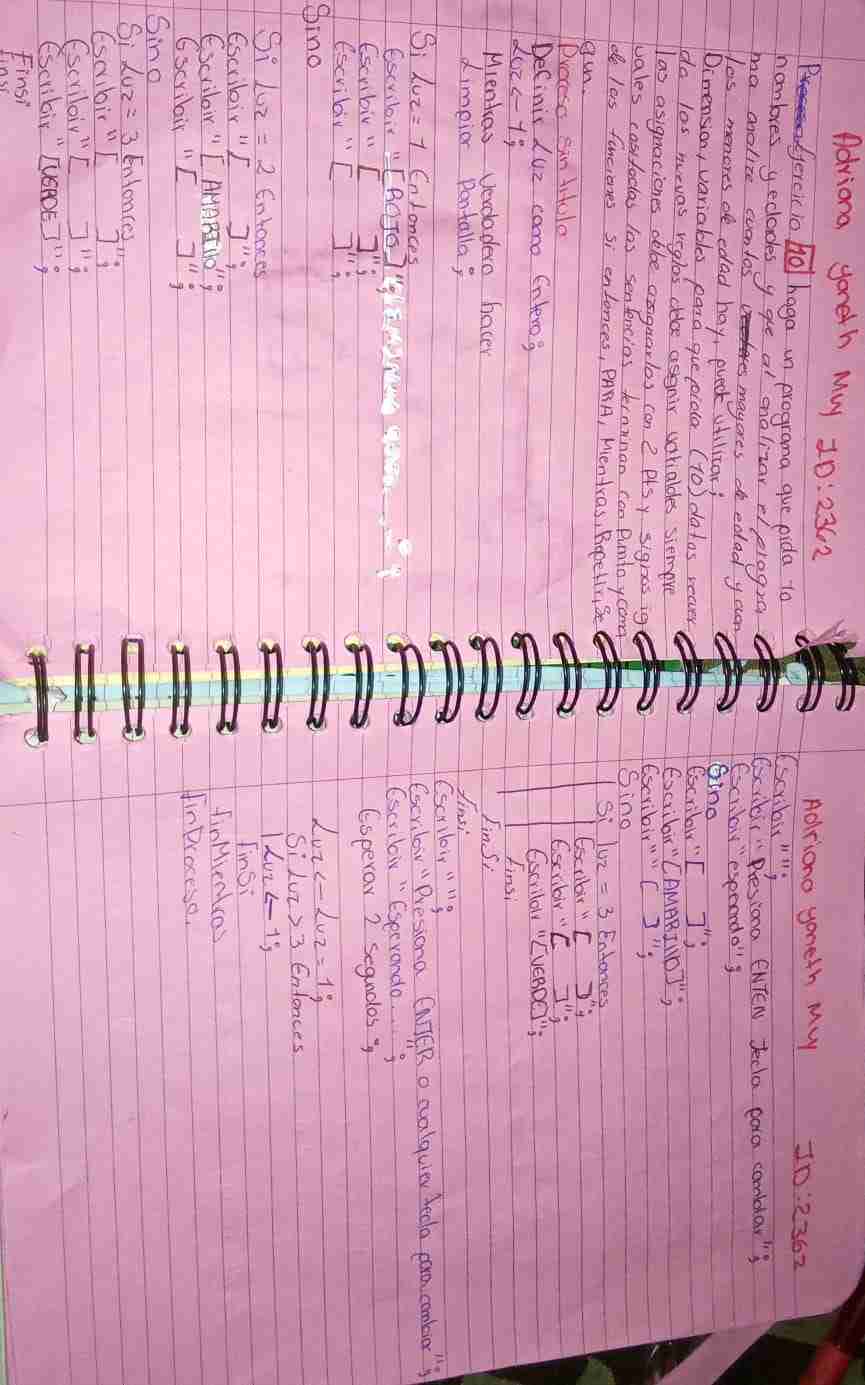 Adriona yaneth Muy ID: 2362
Ejercicio 10 haga un programa que pida 10
nombres y edades y que al analizar el progra
ma analize cuantos mayores de edad y cuan
los menores de edad hay, puede utilizar;
Dimension, variables para que pida (10) datos recuer
da las nuevas reglas debe asignir variables siempre
las asignaciones debe asignarlos con 2 pts y signos ig
uales casi todas las sentencias terminan con punto y coma
de las funciones si entonces, PARA, Mientras, Repetir, Se
gun.
Proceso Sin titulo
Definir Luz como Entero;
Luz <- 1;
Mientras Verdadero hacer
Limpiar Pantalla;
Si Luz = 1 Entonces
Escribir "[ROJO]";
Escribir "[ ]";
Escribir "[ ]";
Sino
Si Luz = 2 Entonces
Escribir "[ ]";
Escribir "[AMARIllO]";
Escribir "[ ]";
Sino
Si Luz = 3 Entonces
Escribir "[ ]";
Escribir "[ ]";
Escribir "[VERDE]";
Finsi
Finsi
Adriono yaneth Muy ID: 2362
Escribir "";
Escribir "Presiona ENTEN tecla para cambiar";
Escribir "esperando";
Sino
Escribir "[ ]";
Escribir "[AMARIllO]";
Escribir "[ ]";
Sino
Si luz = 3 Entonces
Escribir "[ ]";
Escribir "[ ]";
Escribir "[VERDE]";
finsi
finsi
finsi
Escribir "";
Escribir "Presiona ENTER o cualquier tecla para cambiar";
Escribir "Esperando....";
Esperar 2 segndos;
Luz <- Luz = 1;
Si Luz > 3 Entonces
Luz <- 1;
finsi
finMientras
finProceso.